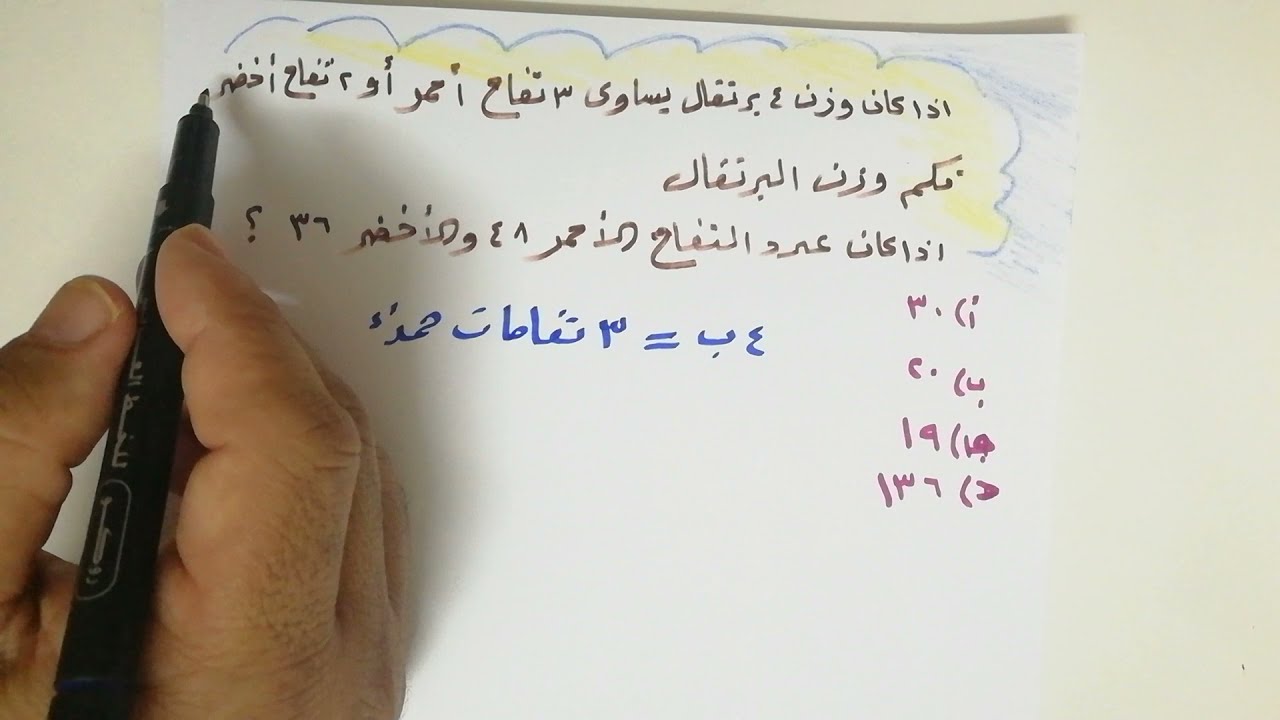 اذا كان وزن ٤ برتقال يساوى ٣ تفاح أحمر أو ٢ تفاح أخضر
فكم وزن البرتقال
اذا كان عدد التفاح الأحمر ٤٨ والأخضر ٣٦ ؟
أ) ٣٠
ب) ٢٠
جـ) ١٩
د) ١٣٦
٤ ب = ٣ تفاحات حمراء
روكو